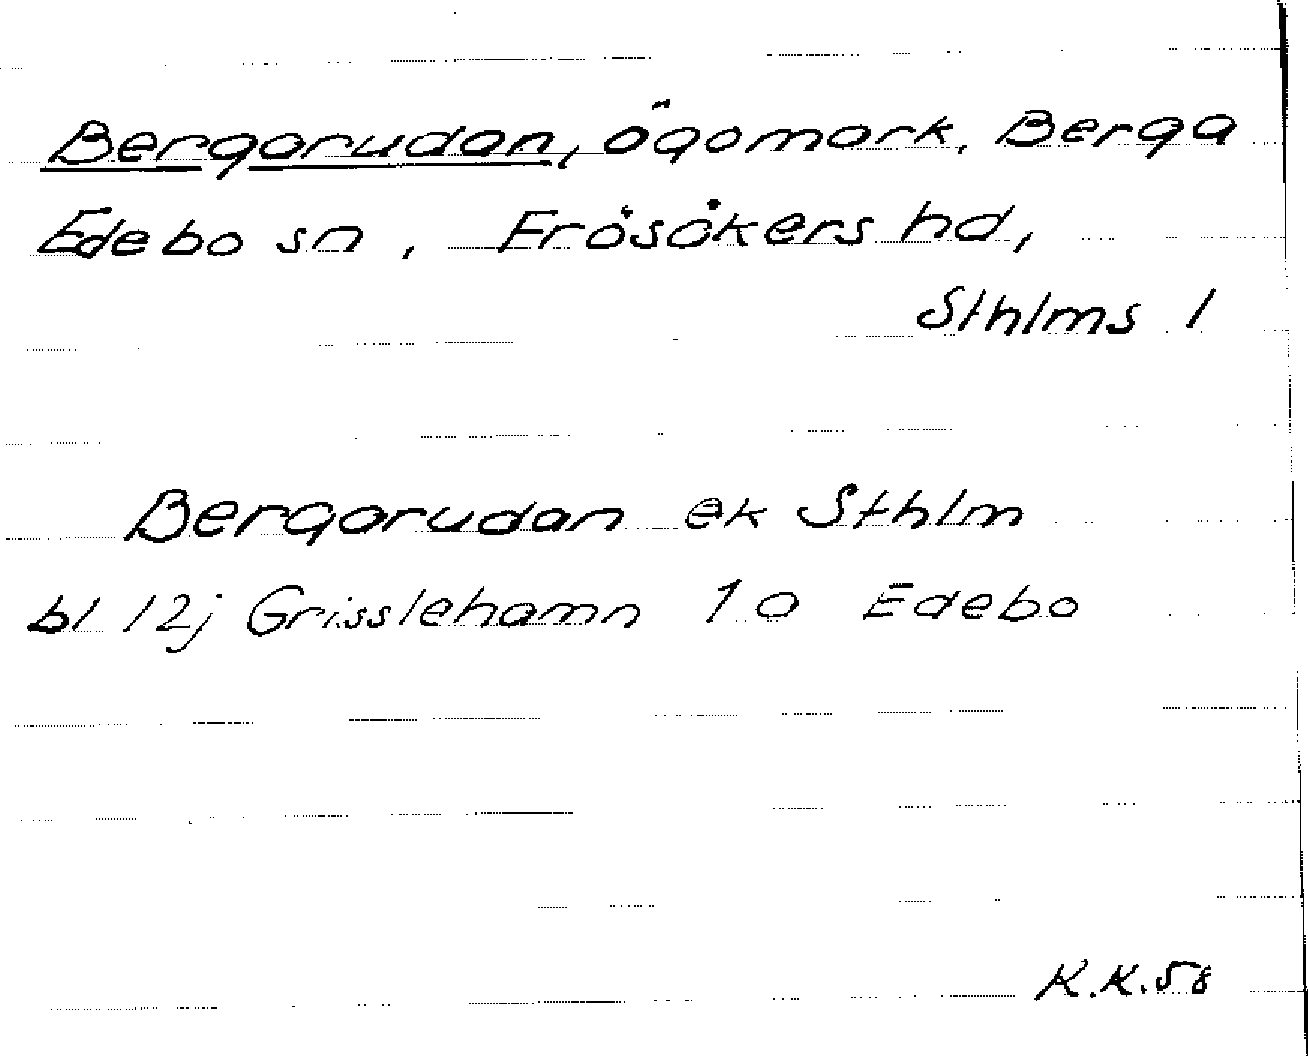 Bergarudan, ägomark, Berga
Edebo sn, Frösåkers hd,
Sthlms l
Bergarudan ek Sthlm
bl 12j Grisslehamn 10 Edebo
K.K.58